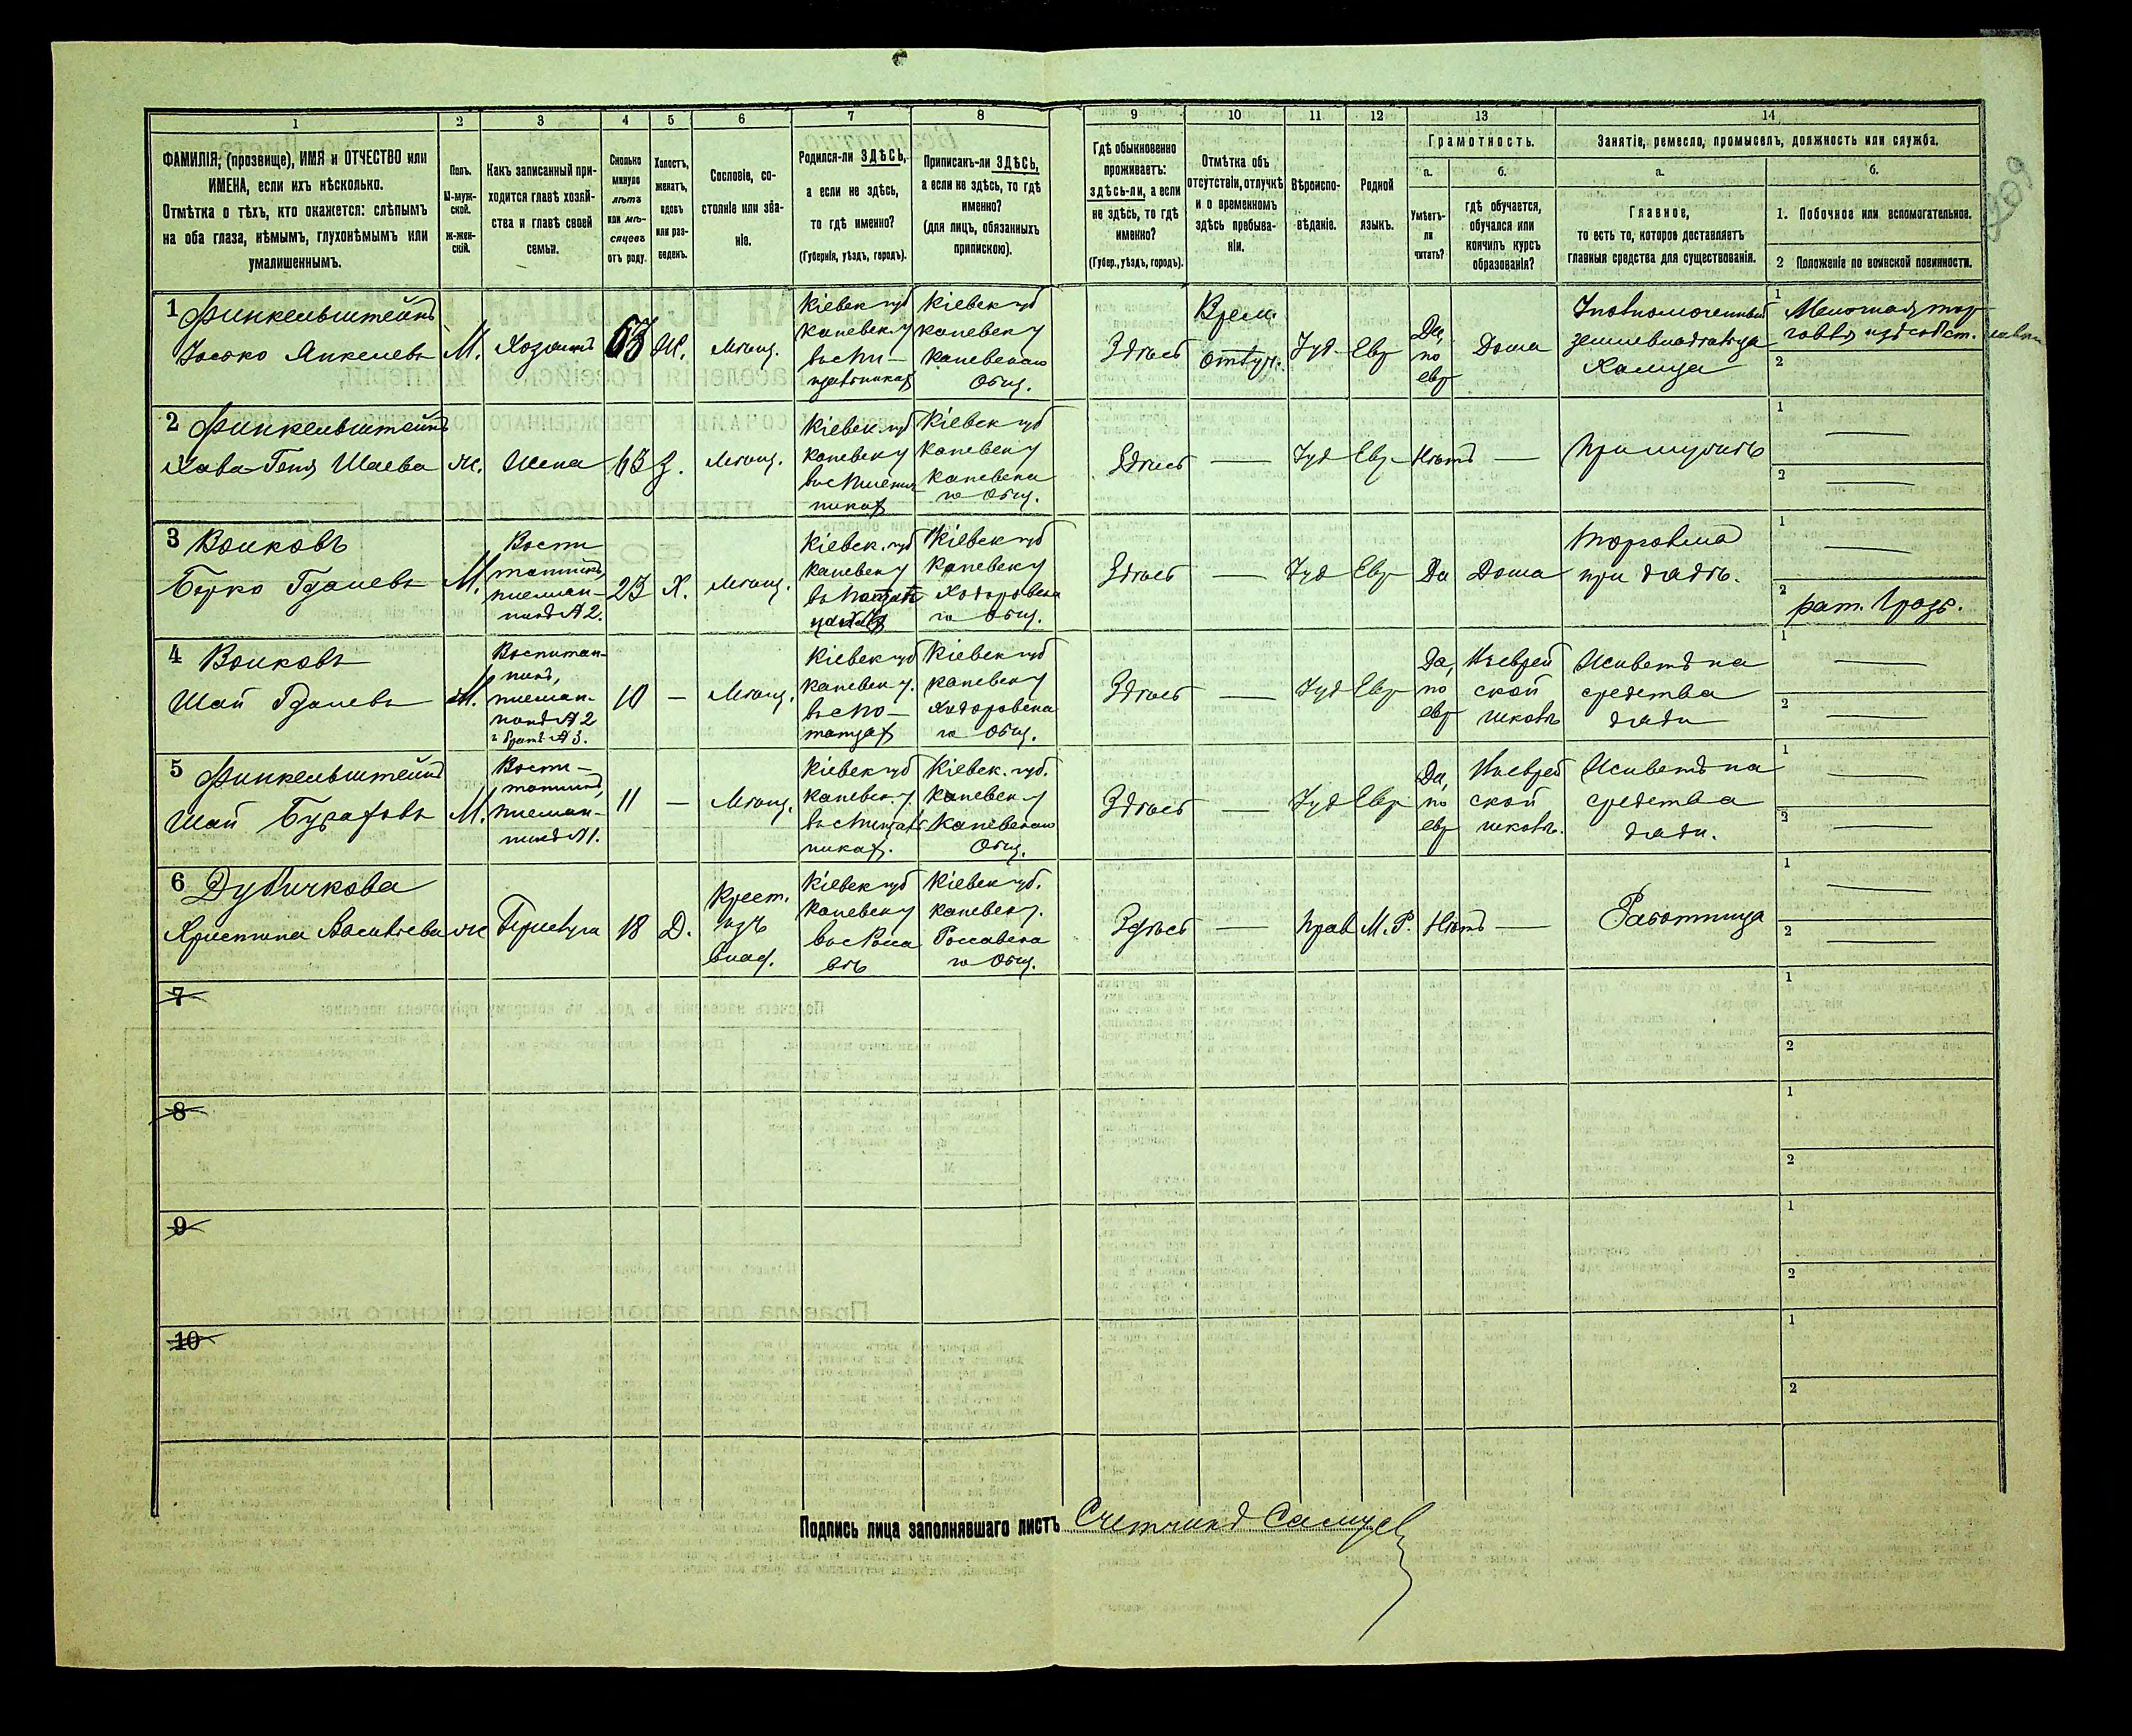 209
1
2
3
4
5
6
7
8
9
10
11
12
13
14
ФАМИЛІЯ, (прозвище), ИМЯ и ОТЧЕСТВО или
ИМЕНА, если ихъ нѣсколько.
Отмѣтка о тѣхъ, кто окажется: слѣпымъ
на оба глаза, нѣмымъ, глухонѣмымъ или
умалишеннымъ.
Полъ.
М-муж-
ской.
ж-жен-
скій.
Какъ записанный при-
ходится главѣ хозяй-
ства и главѣ своей
семьи.
Сколько
минуло
лѣтъ
или мѣ-
сяцевъ
отъ роду.
Холостъ,
женатъ,
вдовъ
или раз-
веденъ.
Сословіе, со-
стояніе или зва-
ніе.
Родился-ли ЗДѢСЬ,
а если не здѣсь,
то гдѣ именно?
(Губернія, уѣздъ, городъ).
Приписанъ-ли ЗДѢСЬ,
а если не здѣсь, то гдѣ
именно?
(для лицъ, обязанныхъ
припискою).
Гдѣ обыкновенно
проживаетъ:
здѣсь-ли, а если
не здѣсь, то гдѣ
именно?
(Губер., уѣздъ, городъ).
Отмѣтка объ
отсутствіи, отлучкѣ
и о временномъ
здѣсь пребыва-
ніи.
Вѣроиспо-
вѣданіе.
Родной
языкъ.
Грамотность.
а.
Умѣетъ-
ли
читать?
б.
гдѣ обучается,
обучался или
кончилъ курсъ
образованія?
Занятіе, ремесло, промыселъ, должность или служба.
а.
Главное,
то есть то, которое доставляетъ
главныя средства для существованія.
б.
1. Побочное или вспомогательное.
2 Положеніе по воинской повинности.
1 Финкельштейнъ
Іосько Янкелевъ
М.
Хозяинъ
63
Ж.
Мѣщ.
Кіевск губ
Каневск у
Кіевск губ
Каневск у
Каневскаго
Общ.
Здѣсь
Врем.
отлуч.
Іуд
Евр
Да,
по
евр
Дома
землевладѣльца
1
Мелочная тор-
говля
2
2 Финкельштейнъ
Хава-Геня Шаева
ж.
Жена
63
З.
Мѣщ.
Кіевск. губ
Каневск у
Кіевск губ
Каневск у
Каневска
го Общ.
Здѣсь
—
Іуд
Евр
Нѣтъ
—
При мужѣ
1 —
2 —
3 Волковъ
Берко Гдалевъ
М.
Воспи
танникъ,
племян-
никъ № 2.
23
Х.
Мѣщ.
Кіевск. губ
Каневск у
Кіевск губ
Каневск у
Ходоровска
го Общ.
Здѣсь
—
Іуд
Евр
Да
Дома
Торговля
при дядѣ.
1 —
2
рат. 1 разр.
4 Волковъ
Шай Гдалевъ
М.
Воспитан-
никъ,
племян-
никъ № 2
и братъ № 3.
10
—
Мѣщ.
Кіевск губ
Каневск у.
въ с По-
тапцах
Кіевск губ
Каневск у
Ходоровска
го Общ.
Здѣсь
—
Іуд
Евр
Да,
по
евр
Въ еврей
ской
школѣ
Живетъ на
средства
дяди
1 —
2 —
5 Финкельштейнъ
Шай
М.
Воспи-
танникъ,
племян-
никъ № 1.
11
—
Мѣщ.
Кіевск губ
Каневск. у.
Кіевск. губ.
Каневск у
Каневскаго
Общ.
Здѣсь
—
Іуд
Евр
Да,
по
евр
Въ еврей
ской
школѣ.
Живетъ на
средства
дяди.
1 —
2 —
6 Дубичкова
Христина Васильева
ж
Прислуга
18
Д.
Крест.
изъ
влад.
Кіевск губ
Каневск у
въ с Росса
вѣ
Кіевск губ.
Каневск у.
Россавска
го Общ.
Здѣсь
—
Прав
М. Р.
Нѣтъ
—
Работница
1 —
2 —
7
1
2
8
1
2
9
1
2
10
1
2
Подпись лица заполнявшаго листъ Счетчикъ